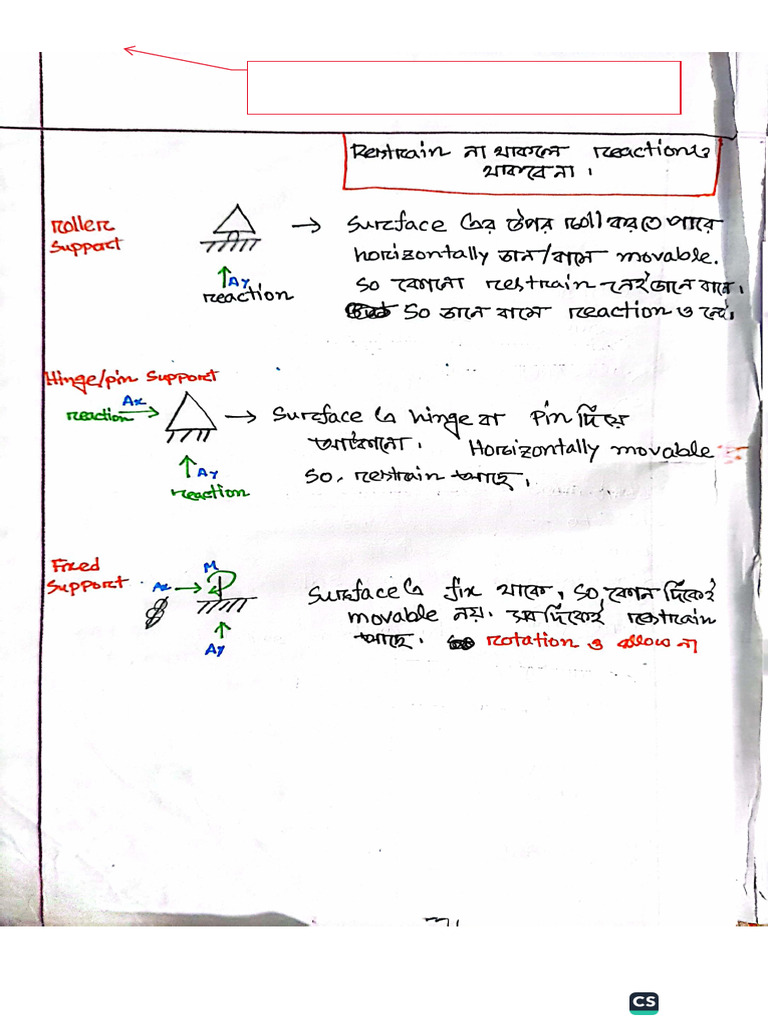 Restrain না থাকলে reaction ও
থাকবে না।
Roller
Support
→ Surface এর উপর roll করতে পারে
horizontally ডান/বামে movable.
So কোনো restrain নেই ডানে বামে।
So ডানে বামে reaction ও নেই।
Ay
reaction
Hinge/pin Support
Ax
reaction
→ Surface এ hinge বা pin দিয়ে
আটকানো। Horizontally movable
So, restrain আছে।
Ay
reaction
Fixed
Support
M
Ax
Surface এ fix থাকে, so, কোন দিকেই
movable নয়. সব দিকেই restrain
আছে। rotation ও allow না
Ay
CS